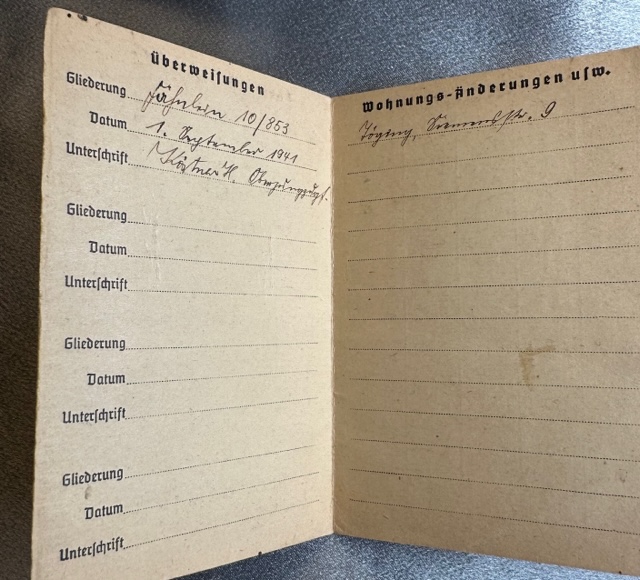 Überweisungen
Gliederung Fähnlein 10/853
Datum 1. September 1941
Unterschrift Köstner H.
Gliederung
Datum
Unterschrift
Gliederung
Datum
Unterschrift
Gliederung
Datum
Unterschrift
Wohnungs-Änderungen usw.
Töging, Siemensstr. 9